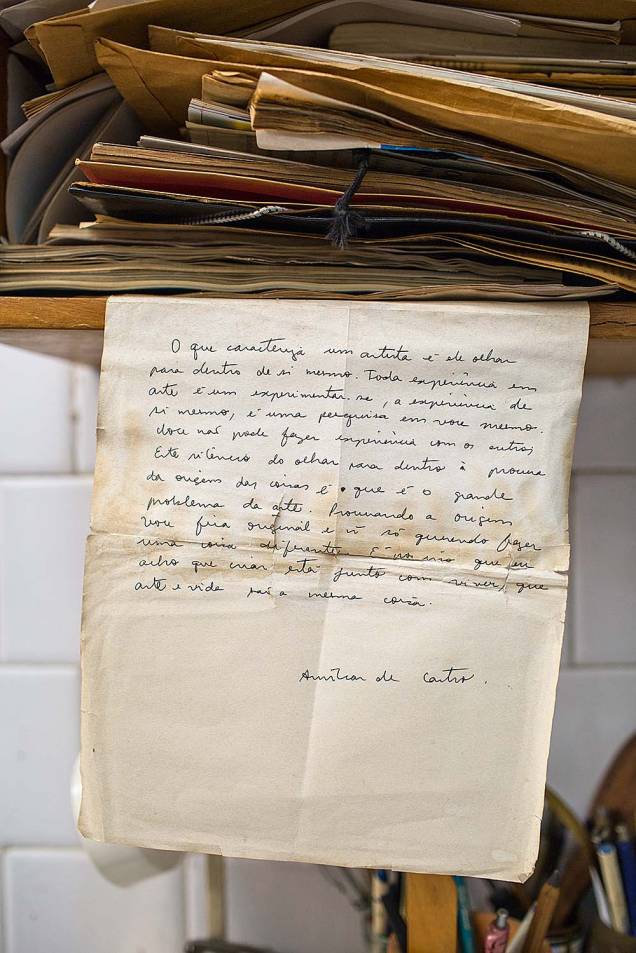 O que caracteriza um artista é ele olhar
para dentro de si mesmo. Toda experiência em
arte é um experimentar-se, a experiência de
si mesmo, é uma pesquisa em você mesmo.
Você não pode fazer experiência com os outros.
Este silêncio do olhar para dentro à procura
da origem das coisas é que é o grande
problema da arte. Procurando a origem
você fica original e não só querendo fazer
uma coisa diferente. É por isso que eu
acho que criar está junto com viver, que
arte e vida são a mesma coisa.
Amílcar de Castro.